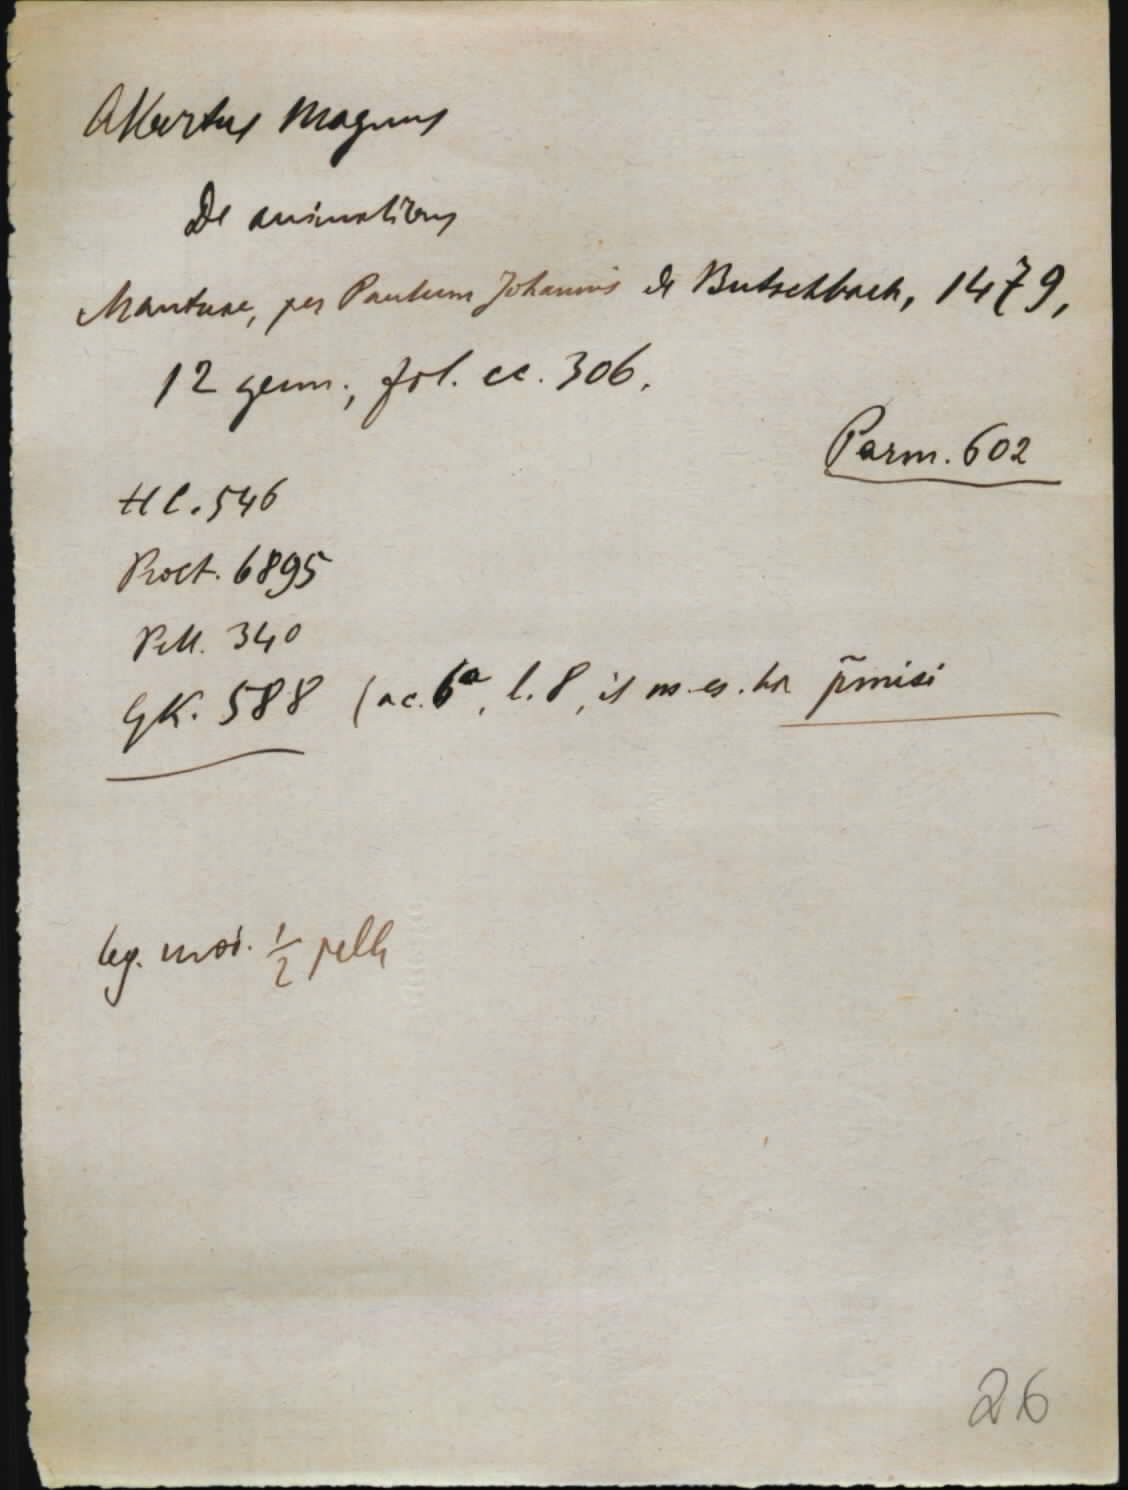 Albertus Magnus
De animalibus
Mantuae, per Paulum Johannis de Butschbach, 1479,
12 genn., fol. cc. 306.
Parm. 602
HC. 546
Proct. 6895
Pell. 340
GK. 588 (a c. 6ª, l. 8, il ns. es. ha p̃misi
leg. mod. 1/2 pelle
26